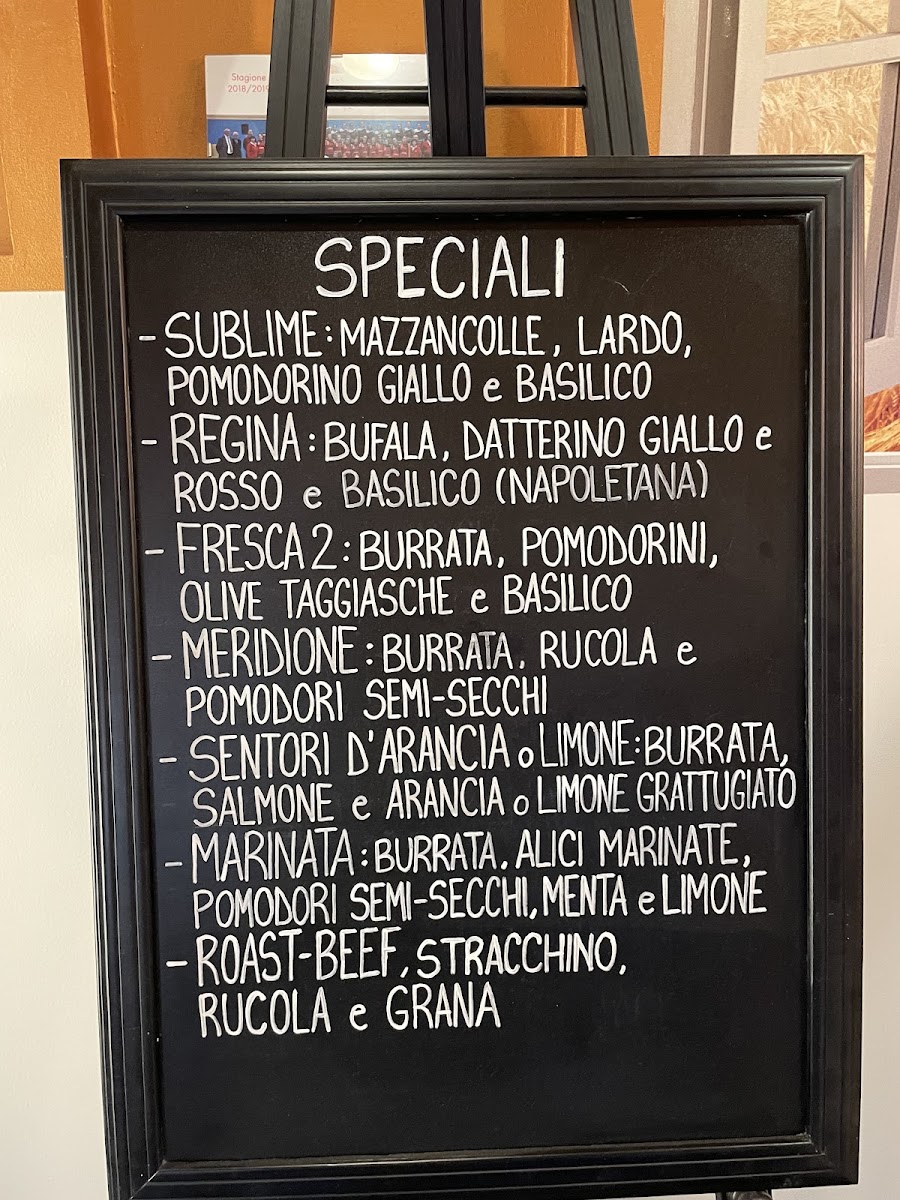 Stagione
2018/2019
SPECIALI
- SUBLIME: MAZZANCOLLE, LARDO,
POMODORINO GIALLO e BASILICO
- REGINA: BUFALA, DATTERINO GIALLO e
ROSSO e BASILICO (NAPOLETANA)
- FRESCA 2: BURRATA, POMODORINI,
OLIVE TAGGIASCHE e BASILICO
- MERIDIONE: BURRATA, RUCOLA e
POMODORI SEMI-SECCHI
- SENTORI D'ARANCIA o LIMONE: BURRATA,
SALMONE e ARANCIA o LIMONE GRATTUGIATO
- MARINATA: BURRATA, ALICI MARINATE,
POMODORI SEMI-SECCHI, MENTA e LIMONE
- ROAST-BEEF, STRACCHINO,
RUCOLA e GRANA